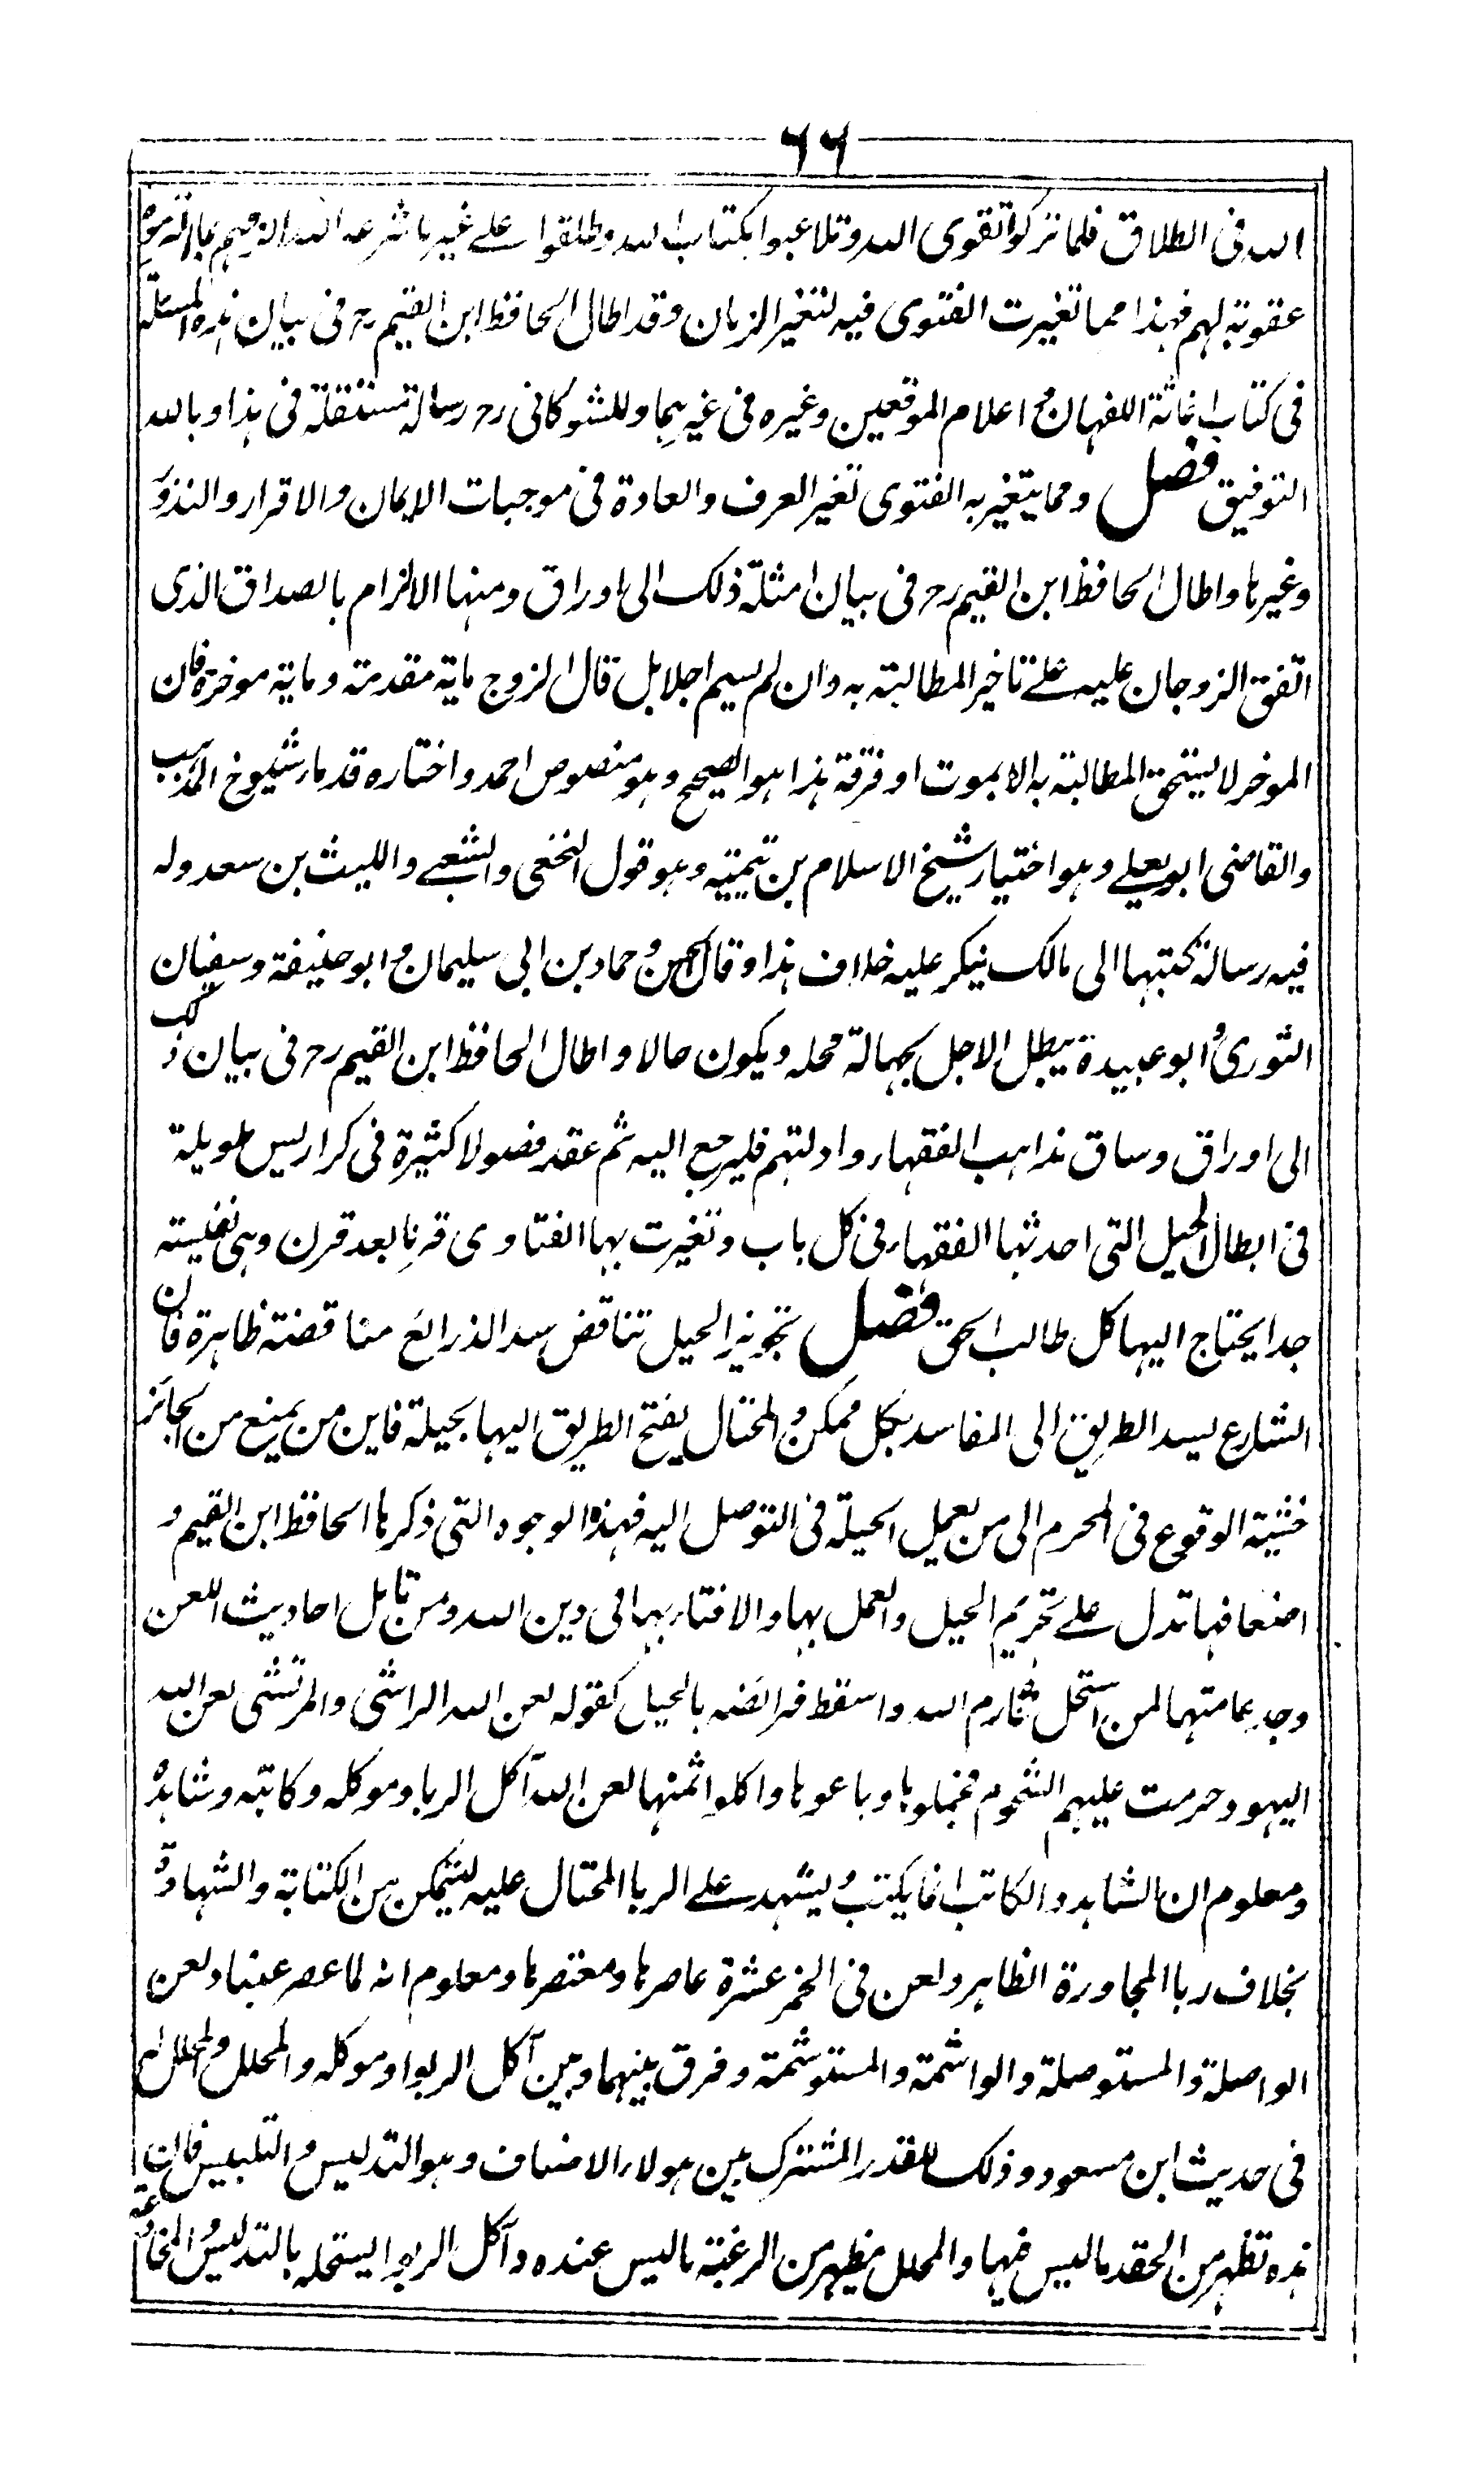 ٦٦
الله فى الطلاق فلما تركوا تقوى الله وتلاعبوا بكتاب الله وطلقوا على غير ما شرعه الله الزمهم بما التزموه
عقوبة لهم فهذا مما تغيرت الفتوى فيه لتغير الزمان وقد اطال الحافظ ابن القيم رح فى بيان هذه المسئلة
فى كتاب اغاثة اللفهان و اعلام الموقعين وغيره فى غيرهما وللشوكانى رح رسالة مستقلة فى هذا وبالله
التوفيق فصل ومما يتغير به الفتوى تغير العرف والعادة فى موجبات الايمان والاقرار والنذور
وغيرها واطال الحافظ ابن القيم رح فى بيان امثلة ذلك الى اوراق ومنها الالزام بالصداق الذى
اتفق الزوجان عليه على تاخير المطالبة به وان لم يسم اجلا بل قال الزوج ماية مقدمة وماية موخرة فان
الموخر لا يستحق المطالبة به الا بموت او فرقة هذا هو الصحيح وهو منصوص احمد واختاره قدماء شيوخ المذهب
والقاضى ابو يعلى وهو اختيار شيخ الاسلام بن تيمية وهو قول النخعى والشعبى والليث بن سعد وله
فيه رسالة كتبها الى مالك ينكر عليه خلاف هذا وقال الحسن و حماد بن ابى سليمان و ابو حنيفة وسفيان
الثورى و ابو عبيدة يبطل الاجل بجهالة محله ويكون حالا واطال الحافظ ابن القيم رح فى بيان ذلك
الى اوراق وساق مذاهب الفقهاء وادلتهم فليرجع اليه ثم عقد فصولا كثيرة فى كراريس طويلة
فى ابطال الحيل التى احدثها الفقهاء فى كل باب وتغيرت بها الفتاوى قرنا بعد قرن وهى نفيسة
جدا يحتاج اليها كل طالب الحق فصل تجويز الحيل تناقض سد الذرائع مناقضة ظاهرة فان
الشارع يسد الطريق الى المفاسد بكل ممكن و المحتال يفتح الطريق اليها بحيلة فاين من يمنع من الجائز
خشية الوقوع فى المحرم الى من يعمل الحيلة فى التوصل اليه فهذه الوجوه التى ذكرها الحافظ ابن القيم و
اضعافها تدل على تحريم الحيل والعمل بها والافتاء بها فى دين الله ومن تامل احاديث اللعن
وجد عامتها لمن استحل محارم الله واسقط فرائضه بالحيل كقوله لعن الله الراشى والمرتشى لعن الله
اليهود حرمت عليهم الشحوم فجملوها وباعوها واكلوا ثمنها لعن الله آكل الربا وموكله وكاتبه وشاهده
ومعلوم ان الشاهد والكاتب انما يكتب و يشهد على الربا المحتال عليه ليتمكن من الكتابة والشهادة
بخلاف ربا المجاورة الظاهر ولعن فى الخمر عشرة عاصرها ومعتصرها ومعلوم انه لما عصر عنبا ولعن
الواصلة والمستوصلة والواشمة والمستوشمة وفرق بينهما وبين آكل الربوا وموكله والمحلل والمحلل له
فى حديث ابن مسعود وذلك للقدر المشترك بين هولاء الاصناف وهو التدليس و التلبيس فان
هذه تظهر من الحقد ما ليس فيها والمحلل يظهر من الرغبة ما ليس عنده وآكل الربوا يستحله بالتدليس و المخادعة